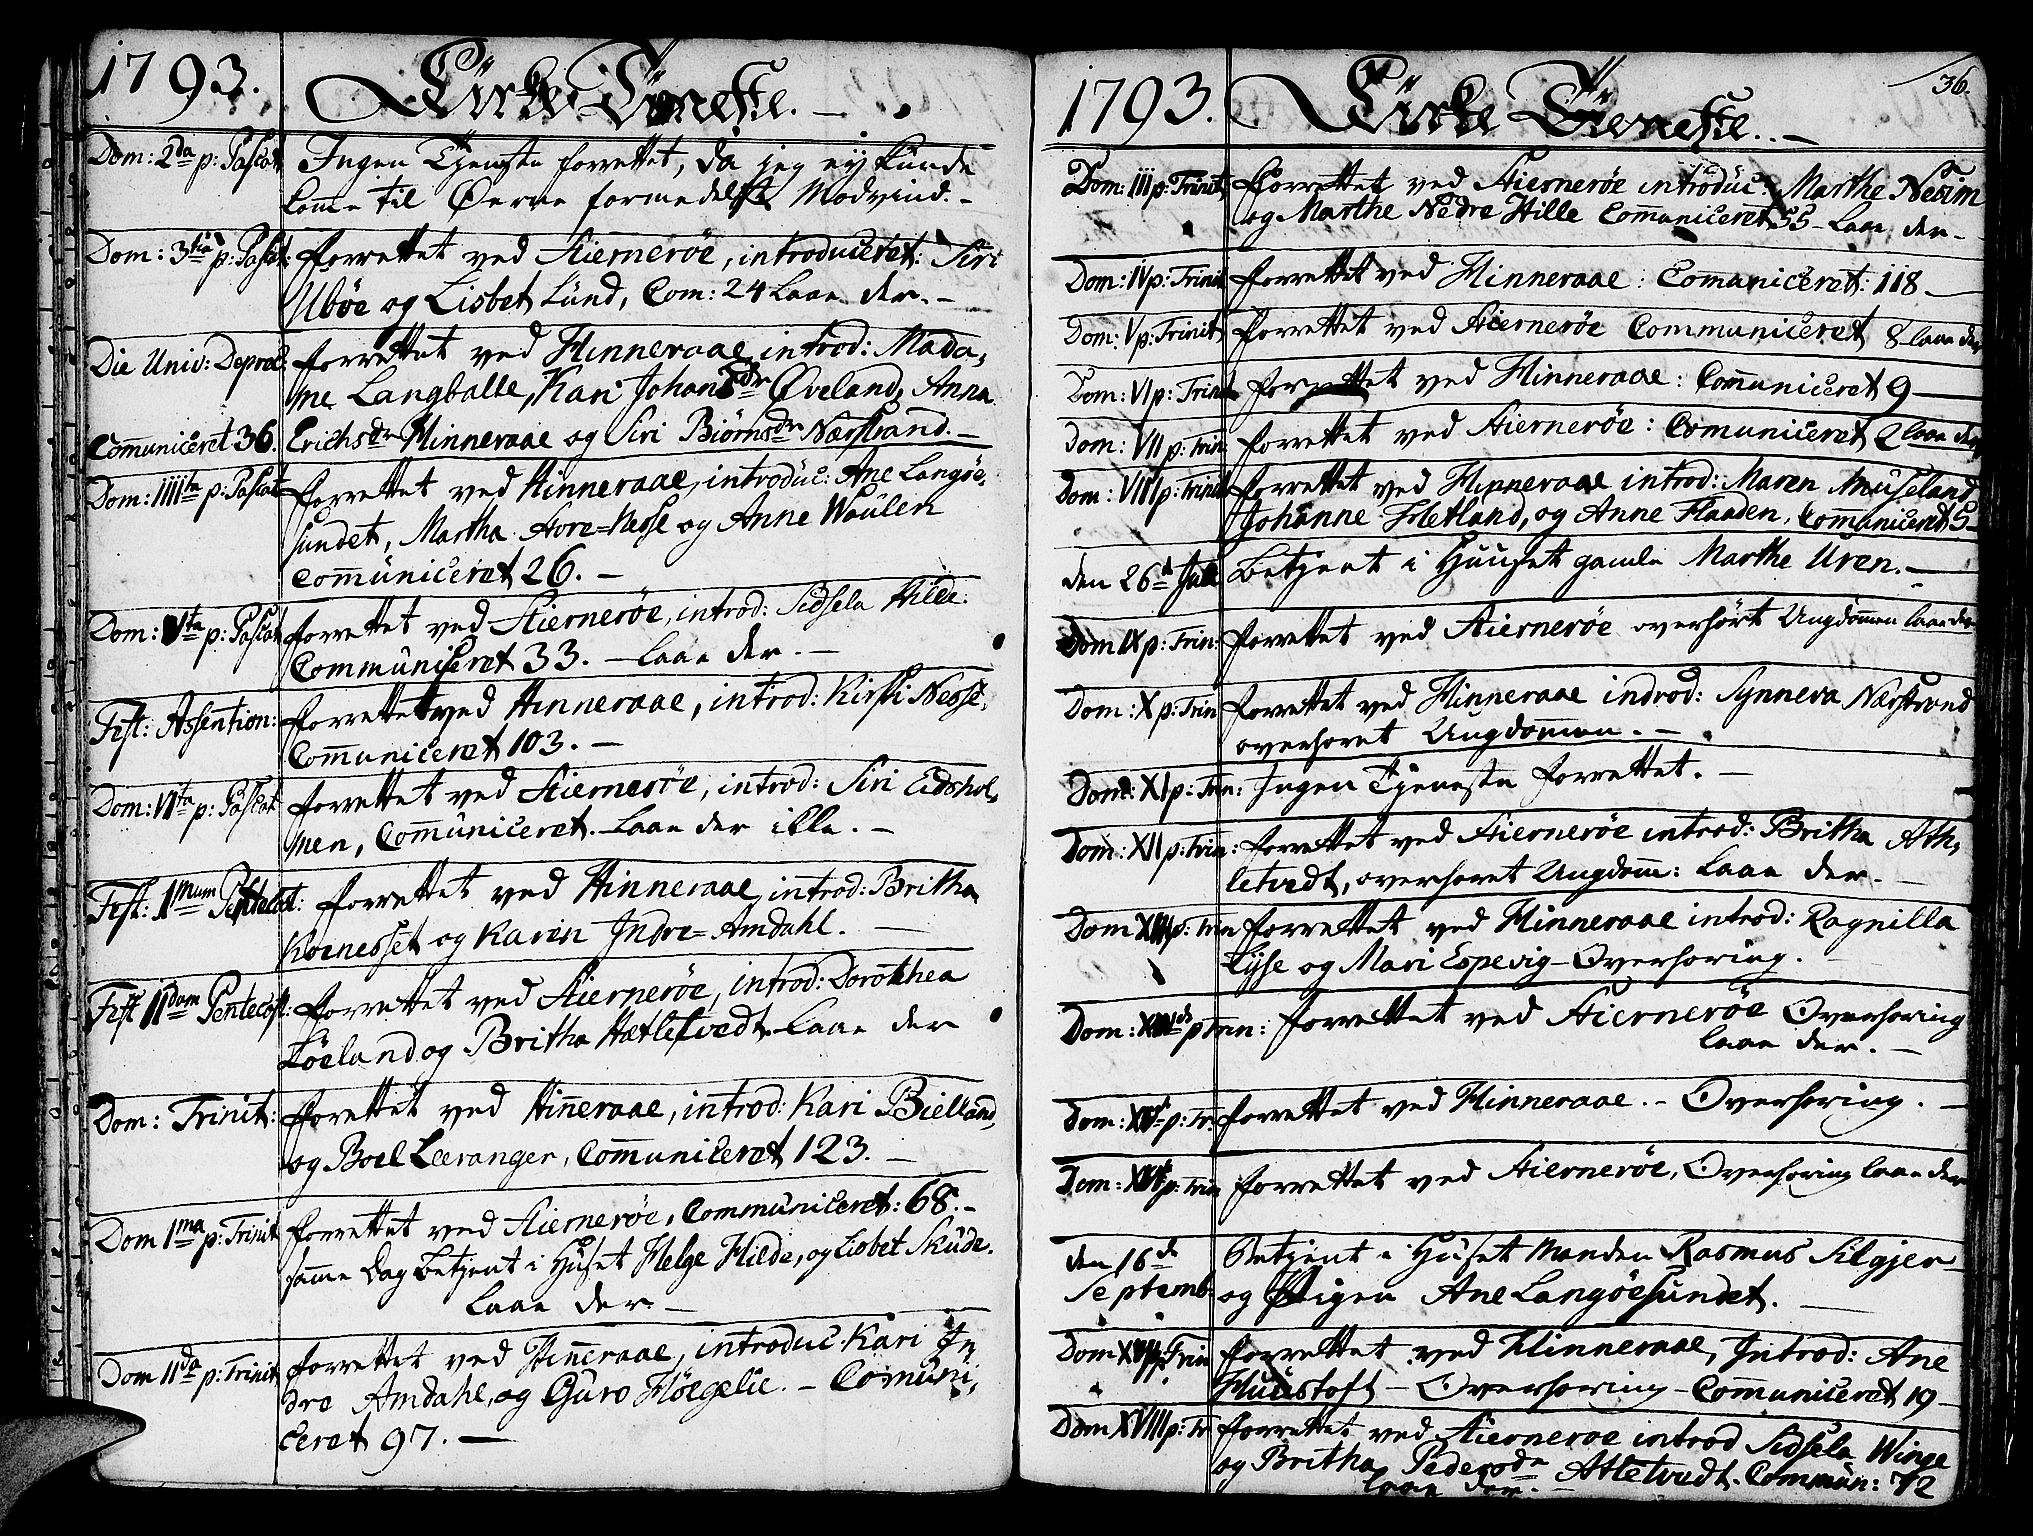 1793. Kirke Tieneste. —
Dom: 2da p: Pascat: Ingen Tjeneste forrettet, da jeg ey kunde
komme til Øerne formedelst Modvind. —
Dom: 3tia p: Pascat: forrettet ved Hiernerøe, introduceret: Siri
Ubøe og Lisbet Lund, Com: 24 laae der. —
Die Univ: Deprec: forrettet ved Hinneraae introd: Mada,
me Langballe, Kari Johansdr Øveland, Anna
Communiceret 36. Erichsdr Hinneraae og Siri Biørnsdr Nærstrand. —
Dom: IIIIta p: Pascat forrettet ved Hinneraae, introduc: Ane Langøe,
sundet, Martha Hore=Nesse og Anne Waulen
Communiceret 26. —
Dom: Vta p: Pascat forrettet ved Hiernerøe, introd: Sidsela Hille:
Communiceret 33. — laae der. —
Fest: Assention: forrettet ved Hinneraae, introd: Kirsti Nesse,
Communiceret 103. —
Dom: VIta p: Pascat forrettet ved Hiernerøe, introd: Siri Eidshol,
men, Communiceret. laae der ikke. —
Fest: 1mum Pentecost: forrettet ved Hinneraae introd: Britha
Kornesset og Karen Indre=Amdahl. —
Fest IIdam Pentecost: forrettet ved Hiernerøe, introd: Dorothea
Løeland og Britha Hatletvedt laae der
Dom: Trinit: forettet ved Hinneraae, introd: Kari Bielland,
og Boel Leeranger, Communiceret 123. —
Dom 1ma p: Trinit forrettet ved Hiernerøe, Communiceret: 68. —
samme Dag betjent i Huset Helge Hilde, og Lisbet Skude.
laae der —
Dom IIda p: Trinit forrettet ved Hinneraae, introduc. Kari In,
dre Amdahl, og Guro Høegelie. — Comuni,
ceret 97. —
1793. Kirke Tieneste. — 36.
Dom: III p: Trinit, forrettet ved Hiernerøe introduc: Marthe Nesim
og Marthe Nedre Hille Communiceret 55 — laae der —
Dom: IV p: Trinit forrettet ved Hinneraae: Comuniceret: 118 —
Dom: V p: Trinit forrettet ved Hiernerøe Communiceret 8 laae der
Dom: VI p: Trinit forrettet ved Hinneraae: Communiceret 9 —
Dom: VII p: Trin forrettet ved Hiernerøe: Comuniceret 2 laae der
Dom: VIII p: Trinit forrettet ved Hinneraae introd: Maren Museland
Johanne Hetland, og Anne Flaaden, Communiceret 5 —
den 26d Julii Betjent i Huuset gamle Marthe Uren. —
Dom IX p: Trin: forrettet ved Hiernerøe overhørt Ungdommen laae der
Dom: X p: Trin forrettet ved Hinneraae indrod: Synneva Nærstrand
overhøret Ungdommen. —
Dom: XI p: Trin: Ingen Tjeneste forrettet. —
Dom: XII p: Trin: forrettet ved Hiernerøe introd: Britha Ath,
letvedt, overhøret Ungdom: laae der. —
Dom XIII p: Trin forrettet ved Hinneraae introd: Ragnilla
Lyse og Mari Espevig — Overhøring.
Dom: XIVde p Trin: forrettet ved Hiernerøe Overhøring
laae der. —
Dom: XVt p: Tr: forrettet ved Hinneraae. — Overhøring. —
Dom: XVI p: Trin forrettet ved Hiernerøe, Overhøring laae der
den 16de Betjent i Huset Manden Rasmus Silgjer —
Septemb: og Pigen Ane Langøesundet. —
Dom XVII p: Trin forrettet ved Hinneraae, Introd: Ane
Huustoft — Overhøring — Communiceret 19 —
Dom XVIII p: Tr forrettet ved Hiernerøe introd Sidsela Winge
og Britha Pedersdr Atletvedt. Commun: 72
laae der. —